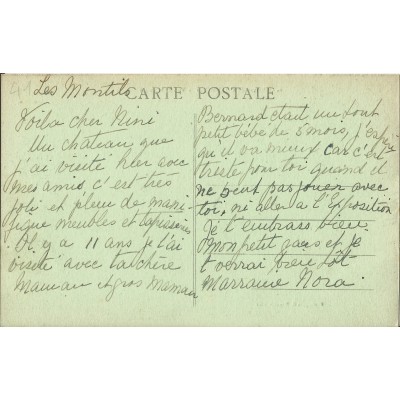 Les Montils
CARTE POSTALE
Voila cher Nini
Un chateau que
j'ai visité hier avec
mes amis c'est très
joli et plein de mani
figue meubles et tapisseries
Il y a 11 ans je l'ai
visité avec ta chère
Maman et gros maman
Bernard était un tout
petit bébé de 5 mois, j'espère
qu'il va mieux car c'est
triste pour toi quand il
ne peut pas jouer avec
toi, ni aller a l'Exposition
Je t'embrass bien
Mon petit gars et je
t verrai bien tôt
Marraine Nora